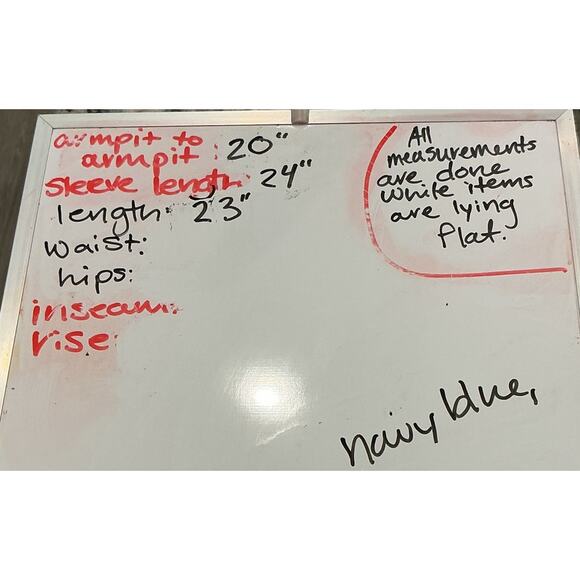 armpit to
armpit: 20"
sleeve length: 24"
length: 23"
waist:
hips:
inseam:
rise:
All
measurements
are done
while items
are lying
flat.
navy blue,